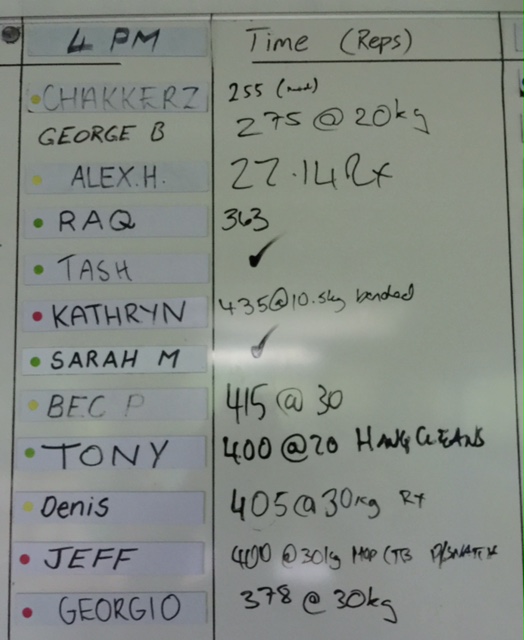 4 PM Time (Reps)
CHAKKERZ 255
GEORGE B 275 @ 20kg
ALEX.H. 27.14 Rx
RAQ 363
TASH ✓
KATHRYN 435@10.5kg banded
SARAH M ✓
BEC P 415 @ 30
TONY 400 @20 HANG CLEANS
Denis 405@30kg Rx
JEFF 400 @30kg
GEORGIO 378 @ 30kg